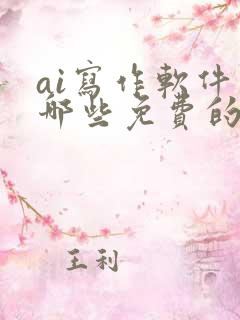 ai寫作軟件
哪些免費的
王利